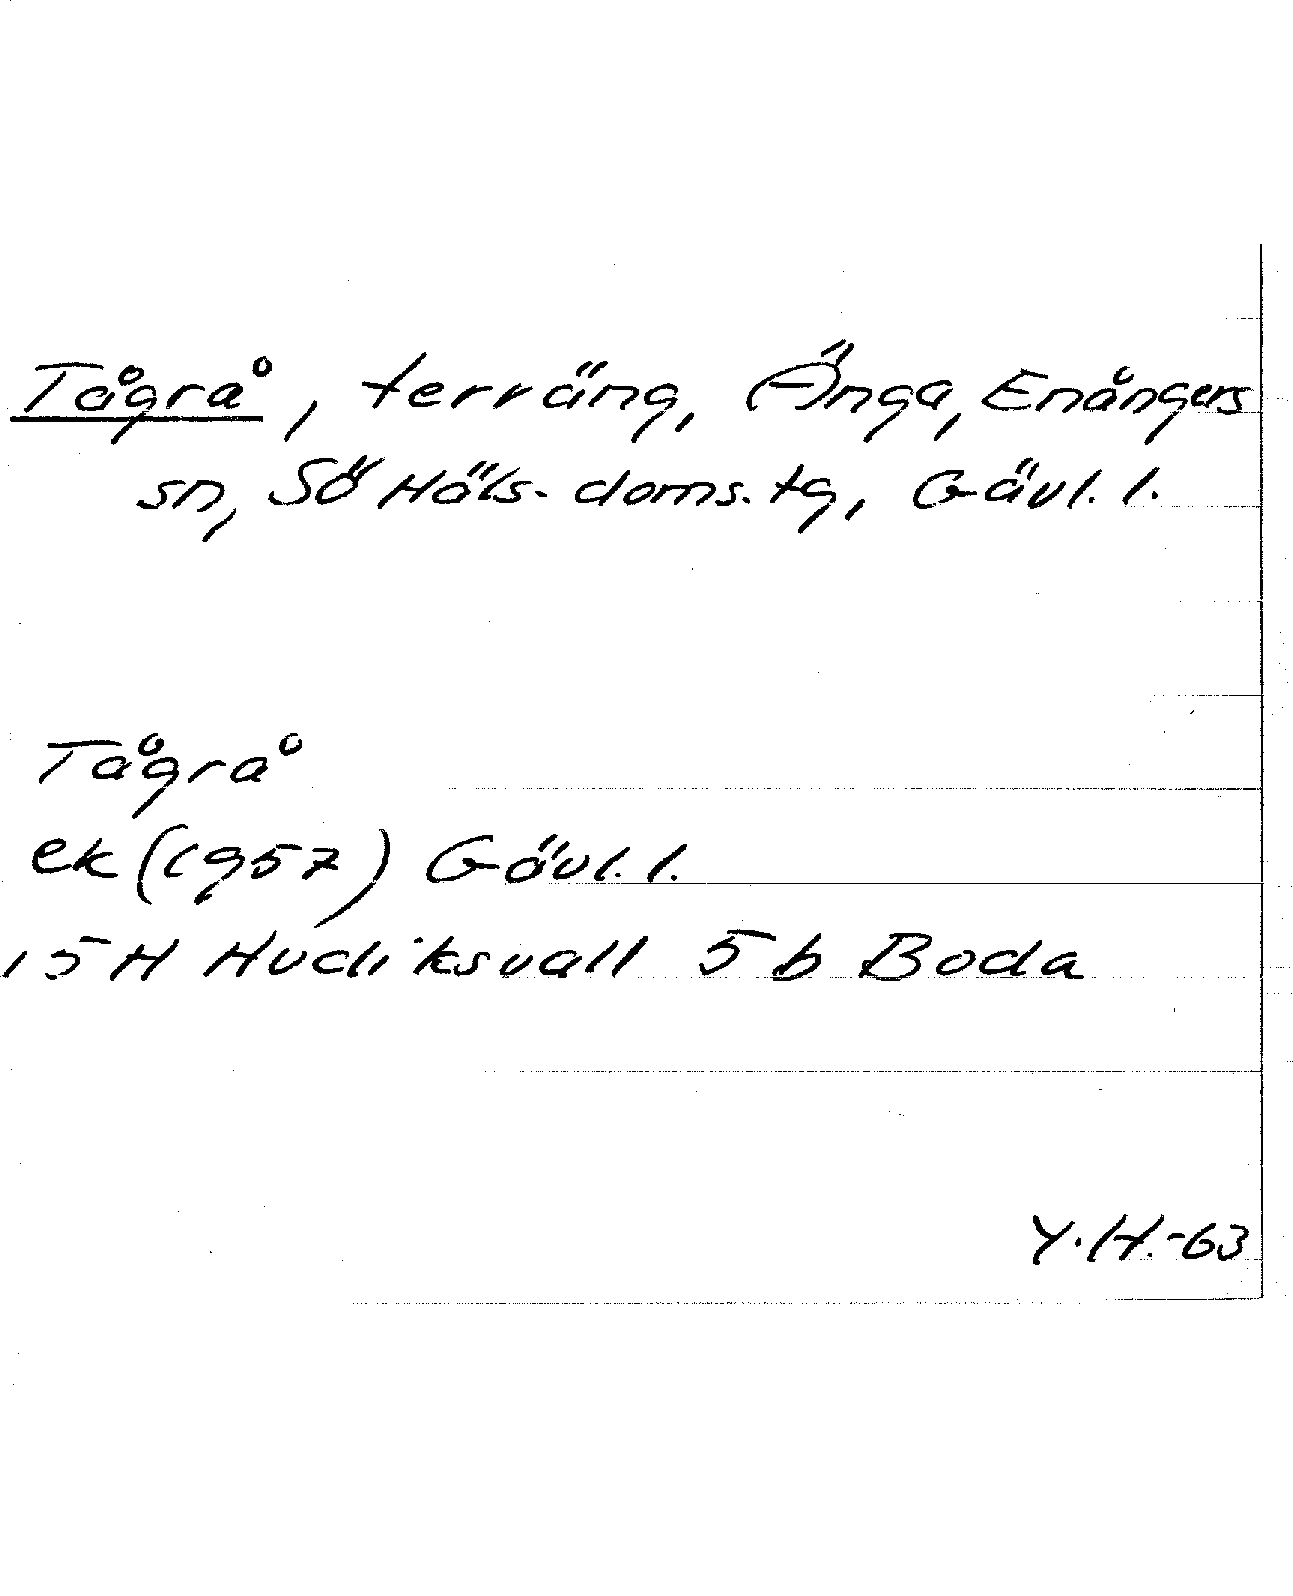 Tågrå, terräng, Änga, Enångers
sn, Sö Häls. doms. tg, Gävl. l.
Tågrå
ek (1957) Gävl. l.
15H Hudiksvall 5b Boda
Y.H.-63